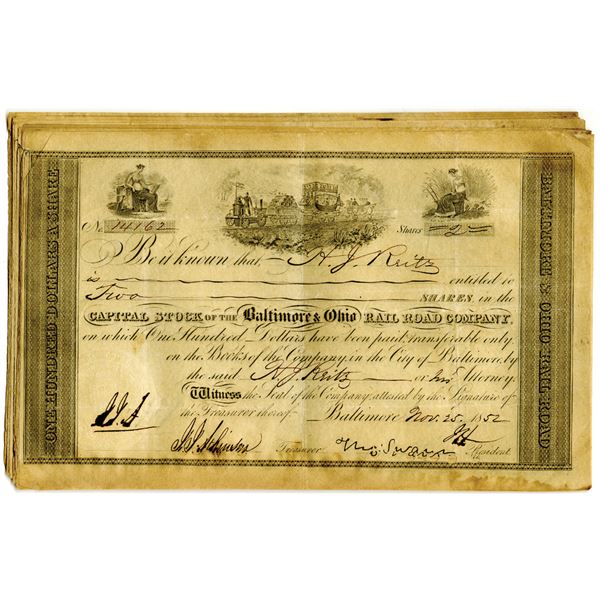 No. 14162 Shares 2
Be it known that A. J. Reitz
is entitled to
Two SHARES, in the
CAPITAL STOCK OF THE Baltimore & Ohio RAIL ROAD COMPANY,
on which One Hundred Dollars have been paid, transferable only
on the Books of the Company, in the City of Baltimore, by
the said A J. Reitz or his Attorney.
Witness the Seal of the Company, attested by the Signature of
the Treasurer thereof. Baltimore Nov. 25, 1852
Treasurer President
ONE HUNDRED DOLLARS A SHARE
BALTIMORE & OHIO RAIL ROAD